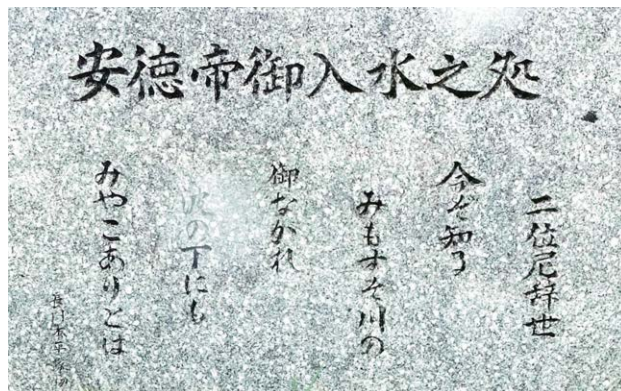 安徳帝御入水之処
二位尼辞世
今ぞ知る
みもすそ川の
御なかれ
波の下にも
みやこありとは
長門本平家物